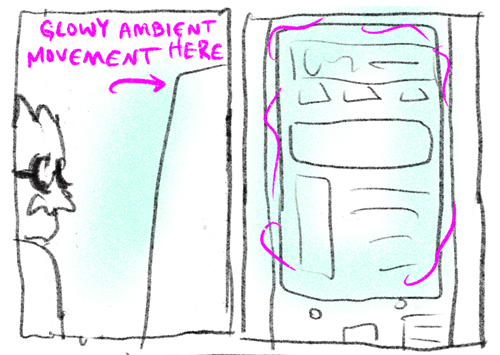 GLOWY AMBIENT
MOVEMENT HERE